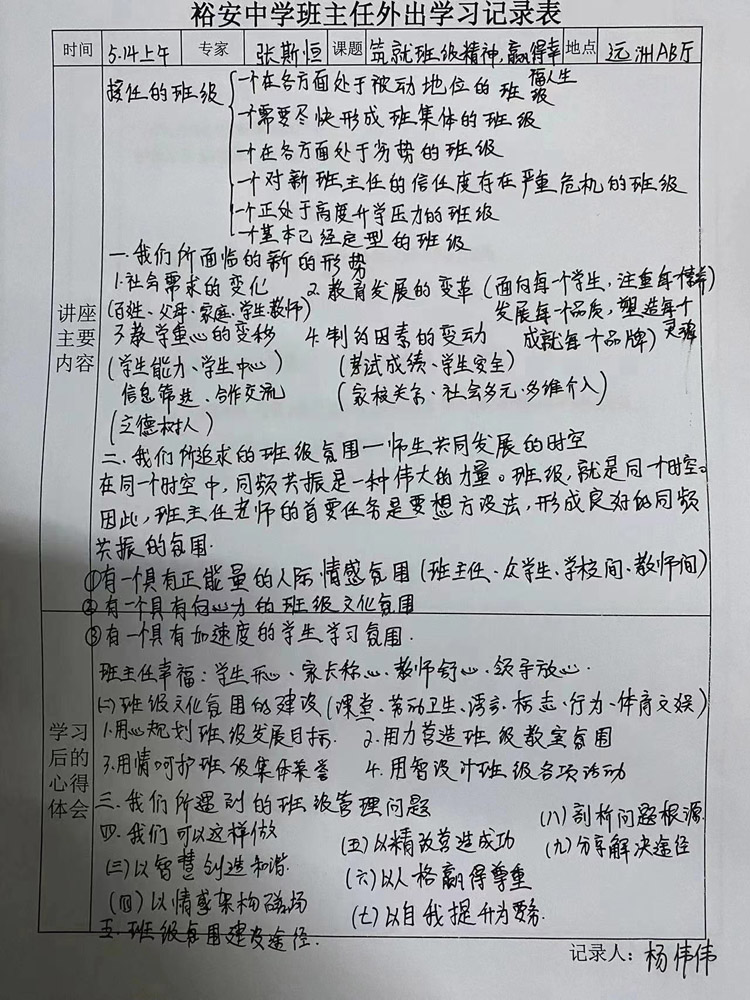 裕安中学班主任外出学习记录表
时间 5.14上午 专家 张斯恒 课题 筑就班级精神,赢得幸福人生 地点 远洲AB厅
讲座主要内容
接任的班级
一个在各方面处于被动地位的班级
一个需要尽快形成班集体的班级
一个在各方面处于劣势的班级
一个对新班主任的信任度存在严重危机的班级
一个正处于高度升学压力的班级
一个基本已经定型的班级
一.我们所面临的新的形势
1.社会需求的变化 2.教育发展的变革(面向每一个学生,注重每个情养)
(百姓、父母、家庭、学生教师) 发展每个品质,塑造每个灵魂
3.教学重心的变移 4.制约因素的变动 成就每个品牌)
(学生能力、学生中心) (考试成绩、学生安全)
信息筛选、合作交流 (家校关系、社会多元、多维介入)
(立德树人)
二.我们所追求的班级氛围—师生共同发展的时空
在同一个时空中,同频共振是一种伟大的力量。班级,就是同一个时空。
因此,班主任老师的首要任务是要想方设法,形成良好的同频
共振的氛围.
①有一个具有正能量的人际情感氛围(班主任、众学生、学校间、教师间)
②有一个具有向心力的班级文化氛围
③有一个具有加速度的学生学习氛围.
学习后的心得体会
班主任幸福:学生开心、家长称心、教师舒心、领导放心.
(二)班级文化氛围的建设(课堂、劳动卫生、语言、标志、行为、体育文娱)
1.用心规划班级发展目标. 2.用力营造班级教室氛围
3.用情呵护班级集体荣誉 4.用智设计班级各项活动
三.我们所遇到的班级管理问题 (八)剖析问题根源
四.我们可以这样做 (五)以精致营造成功 (九)分享解决途径
(三)以智慧创造和谐. (六)以人格赢得尊重
(四)以情感架构磁场 (七)以自我提升为要务.
五.班级氛围建设途径.
记录人:杨伟伟